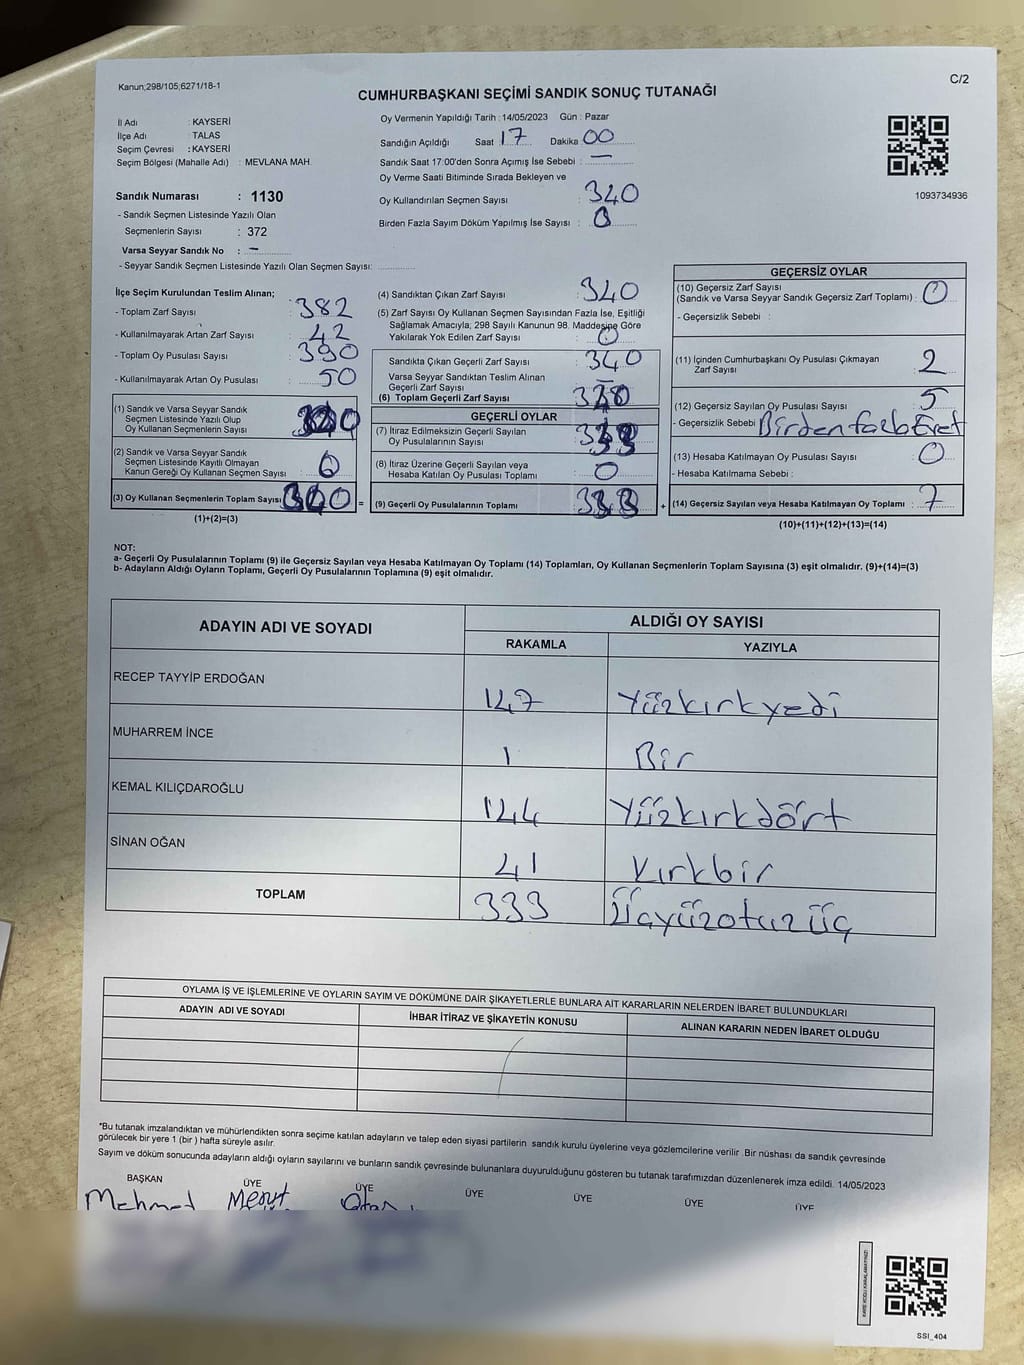 Kanun;298/105;6271/18-1
C/2
CUMHURBAŞKANI SEÇİMİ SANDIK SONUÇ TUTANAĞI
İl Adı : KAYSERİ
İlçe Adı : TALAS
Seçim Çevresi : KAYSERİ
Seçim Bölgesi (Mahalle Adı) : MEVLANA MAH.
Sandık Numarası : 1130
- Sandık Seçmen Listesinde Yazılı Olan
Seçmenlerin Sayısı : 372
Varsa Seyyar Sandık No : -
- Seyyar Sandık Seçmen Listesinde Yazılı Olan Seçmen Sayısı:
Oy Vermenin Yapıldığı Tarih : 14/05/2023 Gün : Pazar
Sandığın Açıldığı Saat 17 Dakika 00
Sandık Saat 17:00'den Sonra Açımış İse Sebebi : -
Oy Verme Saati Bitiminde Sırada Bekleyen ve
Oy Kullandırılan Seçmen Sayısı : 340
Birden Fazla Sayım Döküm Yapılmış İse Sayısı : 0
1093734936
İlçe Seçim Kurulundan Teslim Alınan;
- Toplam Zarf Sayısı : 382
- Kullanılmayarak Artan Zarf Sayısı : 42
- Toplam Oy Pusulası Sayısı : 390
- Kullanılmayarak Artan Oy Pusulası : 50
(1) Sandık ve Varsa Seyyar Sandık
Seçmen Listesinde Yazılı Olup
Oy Kullanan Seçmenlerin Sayısı
(2) Sandık ve Varsa Seyyar Sandık
Seçmen Listesinde Kayıtlı Olmayan
Kanun Gereği Oy Kullanan Seçmen Sayısı : 0
(3) Oy Kullanan Seçmenlerin Toplam Sayısı =
(1)+(2)=(3)
(4) Sandıktan Çıkan Zarf Sayısı : 340
(5) Zarf Sayısı Oy Kullanan Seçmen Sayısından Fazla İse, Eşitliği
Sağlamak Amacıyla; 298 Sayılı Kanunun 98. Maddesine Göre
Yakılarak Yok Edilen Zarf Sayısı : 0
Sandıkta Çıkan Geçerli Zarf Sayısı : 340
Varsa Seyyar Sandıktan Teslim Alınan
Geçerli Zarf Sayısı : -
(6) Toplam Geçerli Zarf Sayısı
GEÇERLİ OYLAR
(7) İtiraz Edilmeksizin Geçerli Sayılan
Oy Pusulalarının Sayısı
(8) İtiraz Üzerine Geçerli Sayılan veya
Hesaba Katılan Oy Pusulası Toplamı : 0
(9) Geçerli Oy Pusulalarının Toplamı : 333 +
GEÇERSİZ OYLAR
(10) Geçersiz Zarf Sayısı
(Sandık ve Varsa Seyyar Sandık Geçersiz Zarf Toplamı) : 0
- Geçersizlik Sebebi :
(11) İçinden Cumhurbaşkanı Oy Pusulası Çıkmayan
Zarf Sayısı : 2
(12) Geçersiz Sayılan Oy Pusulası Sayısı : 5
- Geçersizlik Sebebi Birden fazla Evet
(13) Hesaba Katılmayan Oy Pusulası Sayısı : 0
- Hesaba Katılmama Sebebi :
(14) Geçersiz Sayılan veya Hesaba Katılmayan Oy Toplamı : 7
(10)+(11)+(12)+(13)=(14)
NOT:
a- Geçerli Oy Pusulalarının Toplamı (9) ile Geçersiz Sayılan veya Hesaba Katılmayan Oy Toplamı (14) Toplamları, Oy Kullanan Seçmenlerin Toplam Sayısına (3) eşit olmalıdır. (9)+(14)=(3)
b- Adayların Aldığı Oyların Toplamı, Geçerli Oy Pusulalarının Toplamına (9) eşit olmalıdır.
ADAYIN ADI VE SOYADI
ALDIĞI OY SAYISI
RAKAMLA YAZIYLA
RECEP TAYYİP ERDOĞAN 147 Yüzkırkyedi
MUHARREM İNCE 1 Bir
KEMAL KILIÇDAROĞLU 144 Yüzkırkdört
SİNAN OĞAN 41 Kırkbir
TOPLAM 333 Üçyüzotuzüç
OYLAMA İŞ VE İŞLEMLERİNE VE OYLARIN SAYIM VE DÖKÜMÜNE DAİR ŞİKAYETLERLE BUNLARA AİT KARARLARIN NELERDEN İBARET BULUNDUKLARI
ADAYIN ADI VE SOYADI İHBAR İTİRAZ VE ŞİKAYETİN KONUSU ALINAN KARARIN NEDEN İBARET OLDUĞU
*Bu tutanak imzalandıktan ve mühürlendikten sonra seçime katılan adayların ve talep eden siyasi partilerin sandık kurulu üyelerine veya gözlemcilerine verilir .Bir nüshası da sandık çevresinde
görülecek bir yere 1 (bir ) hafta süreyle asılır.
Sayım ve döküm sonucunda adayların aldığı oyların sayılarını ve bunların sandık çevresinde bulunanlara duyurulduğunu gösteren bu tutanak tarafımızdan düzenlenerek imza edildi. 14/05/2023
BAŞKAN ÜYE ÜYE ÜYE ÜYE ÜYE ÜYE
Mehmed Mesut
SSI_404